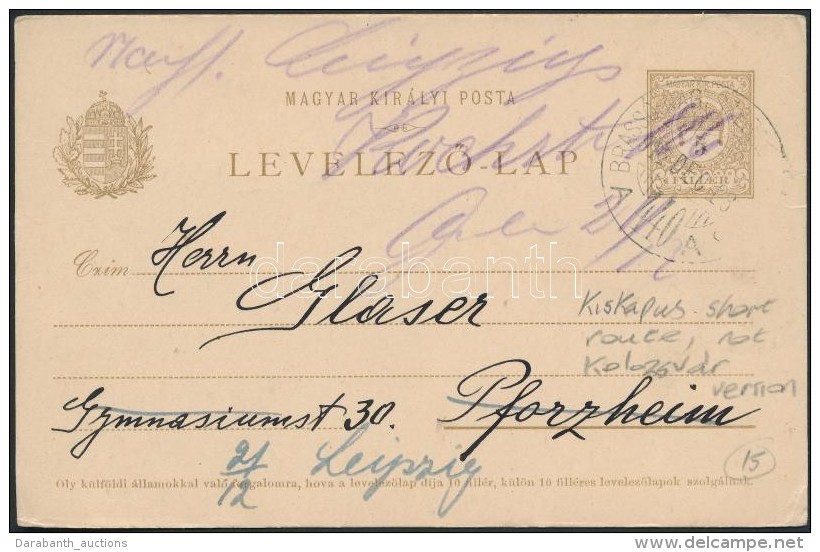 Leipzig
MAGYAR KIRÁLYI POSTA
MAGYAR KIR. POSTA
LEVELEZŐ-LAP
FILLÉR
BRASSÓ
A
140
A
Czim
Herrn
Glaser
Gymnasiumst 30. Pforzheim
Kiskapus short
route, not
Kolozsvár
version
21/12 Leipzig
15
Oly külföldi államokkal való forgalomra, hova a levelezőlap dija 10 fillér, külön 10 filléres levelezőlapok szolgálnak.
darabanth
Darabanth_auctions
delcampe.net